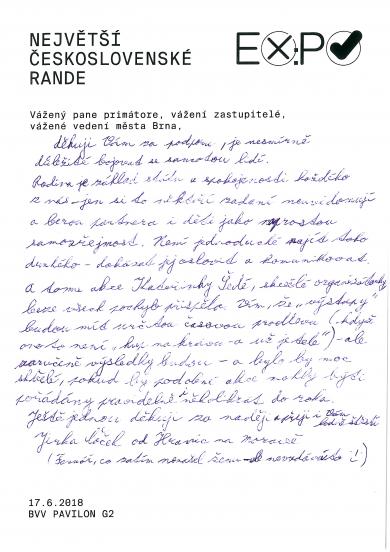 NEJVĚTŠÍ
ČESKOSLOVENSKÉ
RANDE
EXPO
Vážený pane primátore, vážení zastupitelé,
vážené vedení města Brna,
děkuji Vám za podporu, je nesmírně
důležité bojovat se samotou lidí.
Rodina je základ státu a spokojenosti každého
z nás - jen si to někteří zadaní neuvědomují
a berou partnera i děti jako naprostou
samozřejmost. Není jednoduché najít toho
druhého - dokázat jej oslovit a komunikovat.
A tomu akce Kateřinky Šedé, skvělé organizátorky
beze všech pochyb přispěla. Vím, že "výstupy"
budou mít určitou časovou prodlevu (- když
ono to není - a už ) - ale
zaručeně výsledky budou - a bylo by moc
skvělé, pokud by podobné akce mohly být
pořádány pravidelně několikrát do roka.
Ještě jednou děkuji za naději a přeji Vám
hodně štěstí
Jirka od Hranic na Moravě
(, co zatím nenašel ženu - ale nevzdává to !)
17.6.2018
BVV PAVILON G2